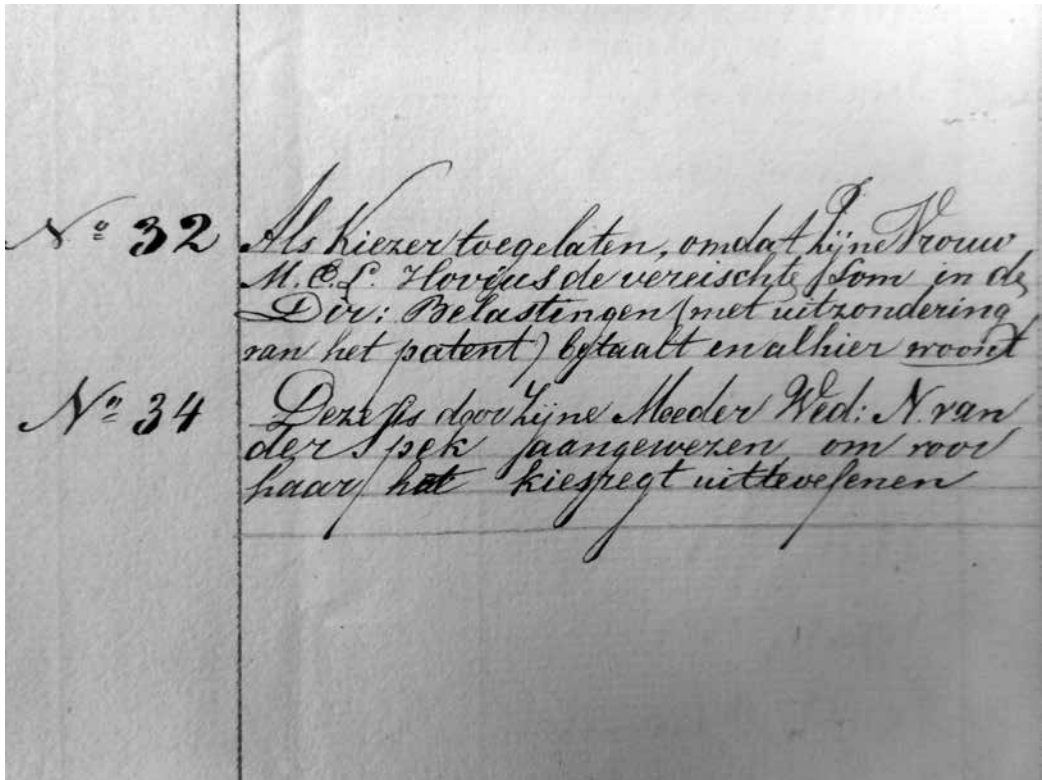 Nº 32 Als Kiezer toegelaten, omdat zijne Vrouw
M.C.L. Hovijus de vereischte som in de
Dir: Belastingen (met uitzondering
van het patent) betaalt en alhier woont
Nº 34 Deze is door zijne Moeder Wed: N. van
der Spek aangewezen om voor
haar het kiesregt uitteoefenen